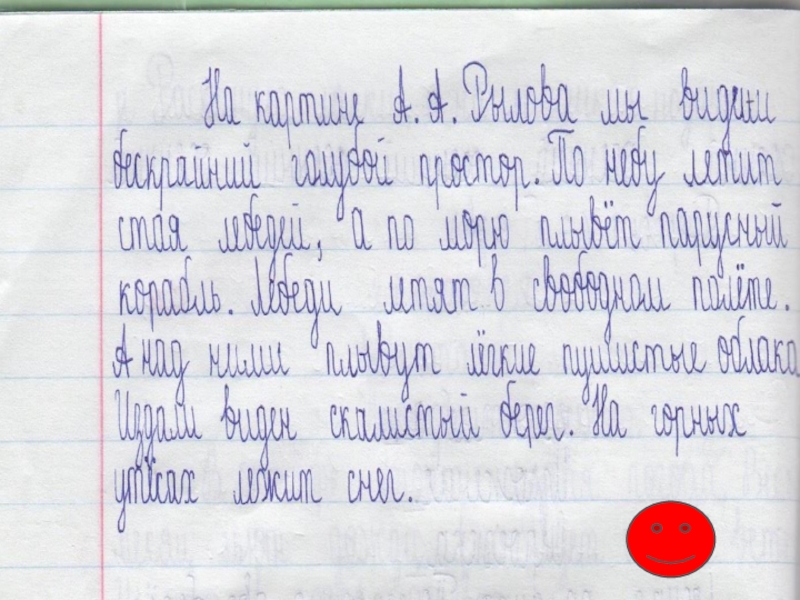 На картине А. А. Рылова мы видим
бескрайний голубой простор. По небу летит
стая лебедей, а по морю плывёт парусный
корабль. Лебеди летят в свободном полёте.
А над ними плывут лёгкие пушистые облака.
Издали виден скалистый берег. На горных
утёсах лежит снег.